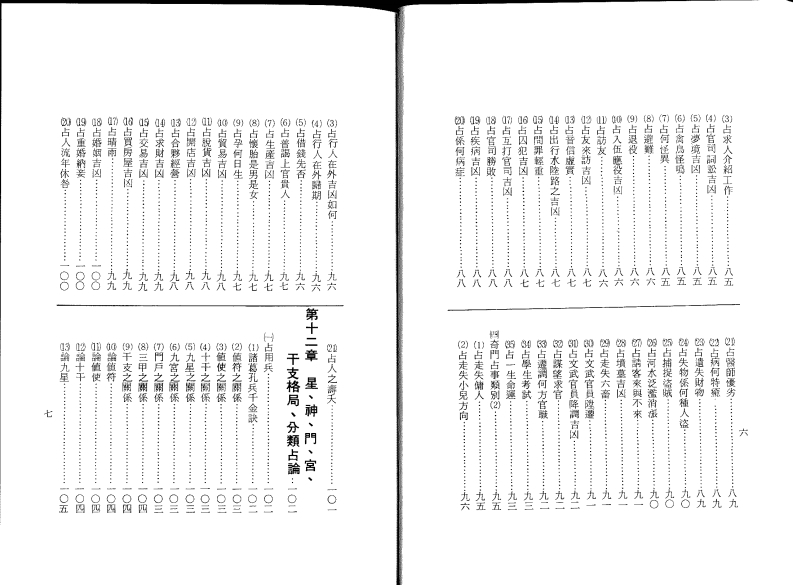 (3)占求人介紹工作……八五
(4)占官司詞訟吉凶……八五
(5)占夢境吉凶……八五
(6)占禽鳥怪鳴……八五
(7)占何怪異……八五
(8)占避難……八六
(9)占退役……八六
(10)占入伍應役吉凶……八六
(11)占訪友……八六
(12)占友來訪吉凶……八七
(13)占音信虛實……八七
(14)占出行水陸路之吉凶……八七
(15)占問罪輕重……八七
(16)占囚犯吉凶……八七
(17)占互打官司吉凶……八八
(18)占官司勝敗……八八
(19)占疾病吉凶……八八
(20)占係何病症……八八
(21)占醫師優劣……八九
(22)占病何時癒……八九
(23)占遺失財物……八九
(24)占失物係何種人盜……九〇
(25)占捕捉盜賊……九〇
(26)占河水泛濫消漲……九〇
(27)占請客來與不來……九一
(28)占墳墓吉凶……九一
(29)占走失六畜……九一
(30)占文武官員陞遷……九一
(31)占文武官員降調吉凶……九二
(32)占謀望求官……九二
(33)占遷調何方官職……九二
(34)占學生考試……九三
(35)占一生命運……九三
㈣奇門占事類別(2)……九五
(1)占走失傭人……九五
(2)占走失小兒方向……九六
六
(3)占行人在外吉凶如何……九六
(4)占行人在外歸期……九六
(5)占借錢先否……九六
(6)占普謁上官貴人……九七
(7)占生產吉凶……九七
(8)占懷胎是男是女……九七
(9)占孕何日生……九七
(10)占貿易吉凶……九八
(11)占脫貨吉凶……九八
(12)占開店吉凶……九八
(13)占合夥經營……九八
(14)占求財吉凶……九九
(15)占交易吉凶……九九
(16)占買房屋吉凶……九九
(17)占晴雨……九九
(18)占婚姻吉凶……一〇〇
(19)占重婚納妾……一〇〇
(20)占人流年休咎……一〇〇
(21)占人之壽夭……一〇一
第十二章 星、神、門、宮、
干支格局、分類占論……一〇二
㈠占用兵……一〇二
(1)諸葛孔兵千金訣……一〇二
(2)值符之關係……一〇二
(3)值使之關係……一〇三
(4)十干之關係……一〇三
(5)九星之關係……一〇三
(6)九宮之關係……一〇三
(7)門戶之關係……一〇三
(8)三甲之關係……一〇四
(9)干支之關係……一〇四
(10)論值符……一〇四
(11)論值使……一〇四
(12)論十干……一〇四
(13)論九星……一〇五
七